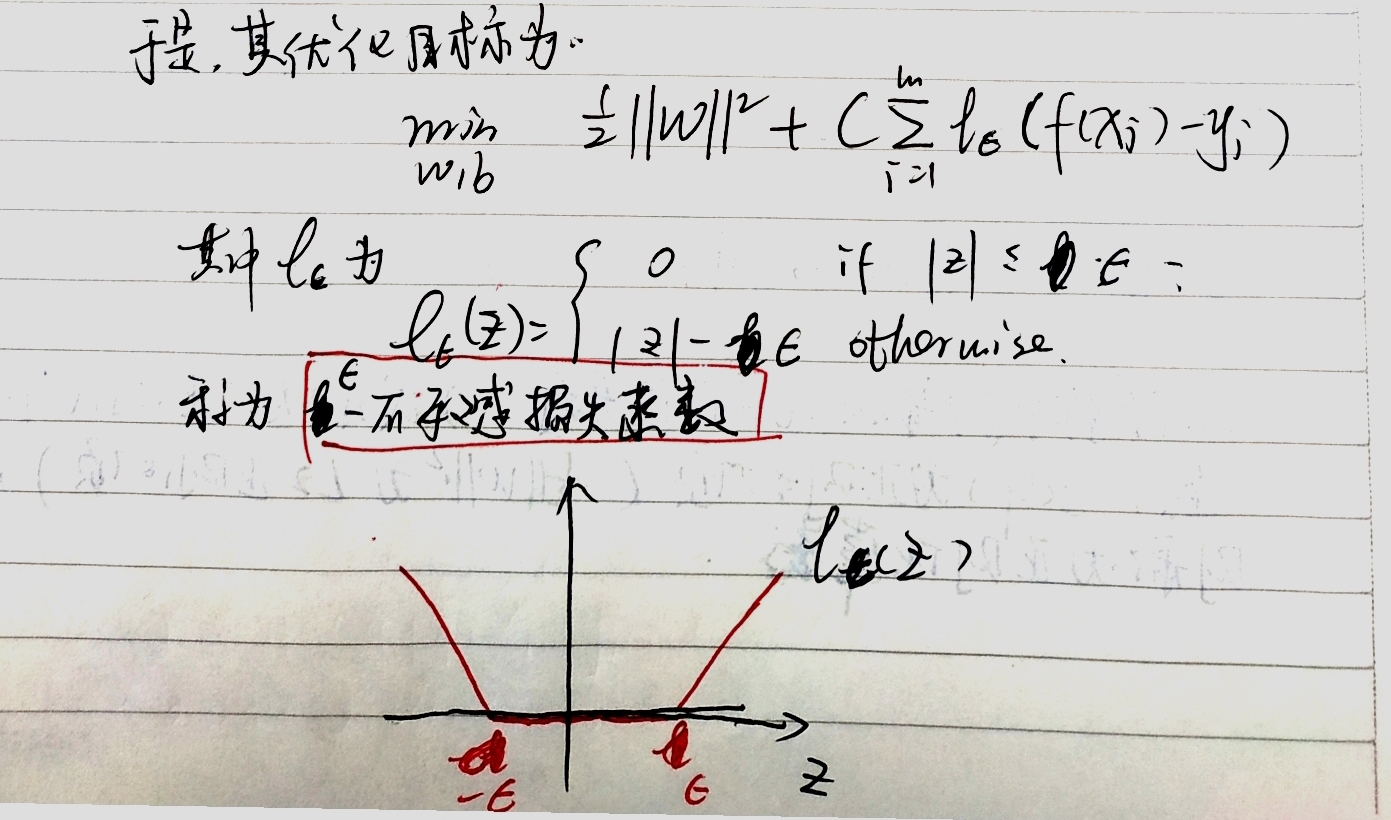 于是,其优化目标为.
min 1/2 ||w||² + C Σ lϵ (f(xi)-yi)
w,b i=1 m
其中 lϵ 为
lϵ(z)= { 0 if |z| ≤ ϵ ;
|z|-ϵ otherwise.
称为 ϵ-不敏感损失函数
lϵ(z)
-ϵ ϵ z